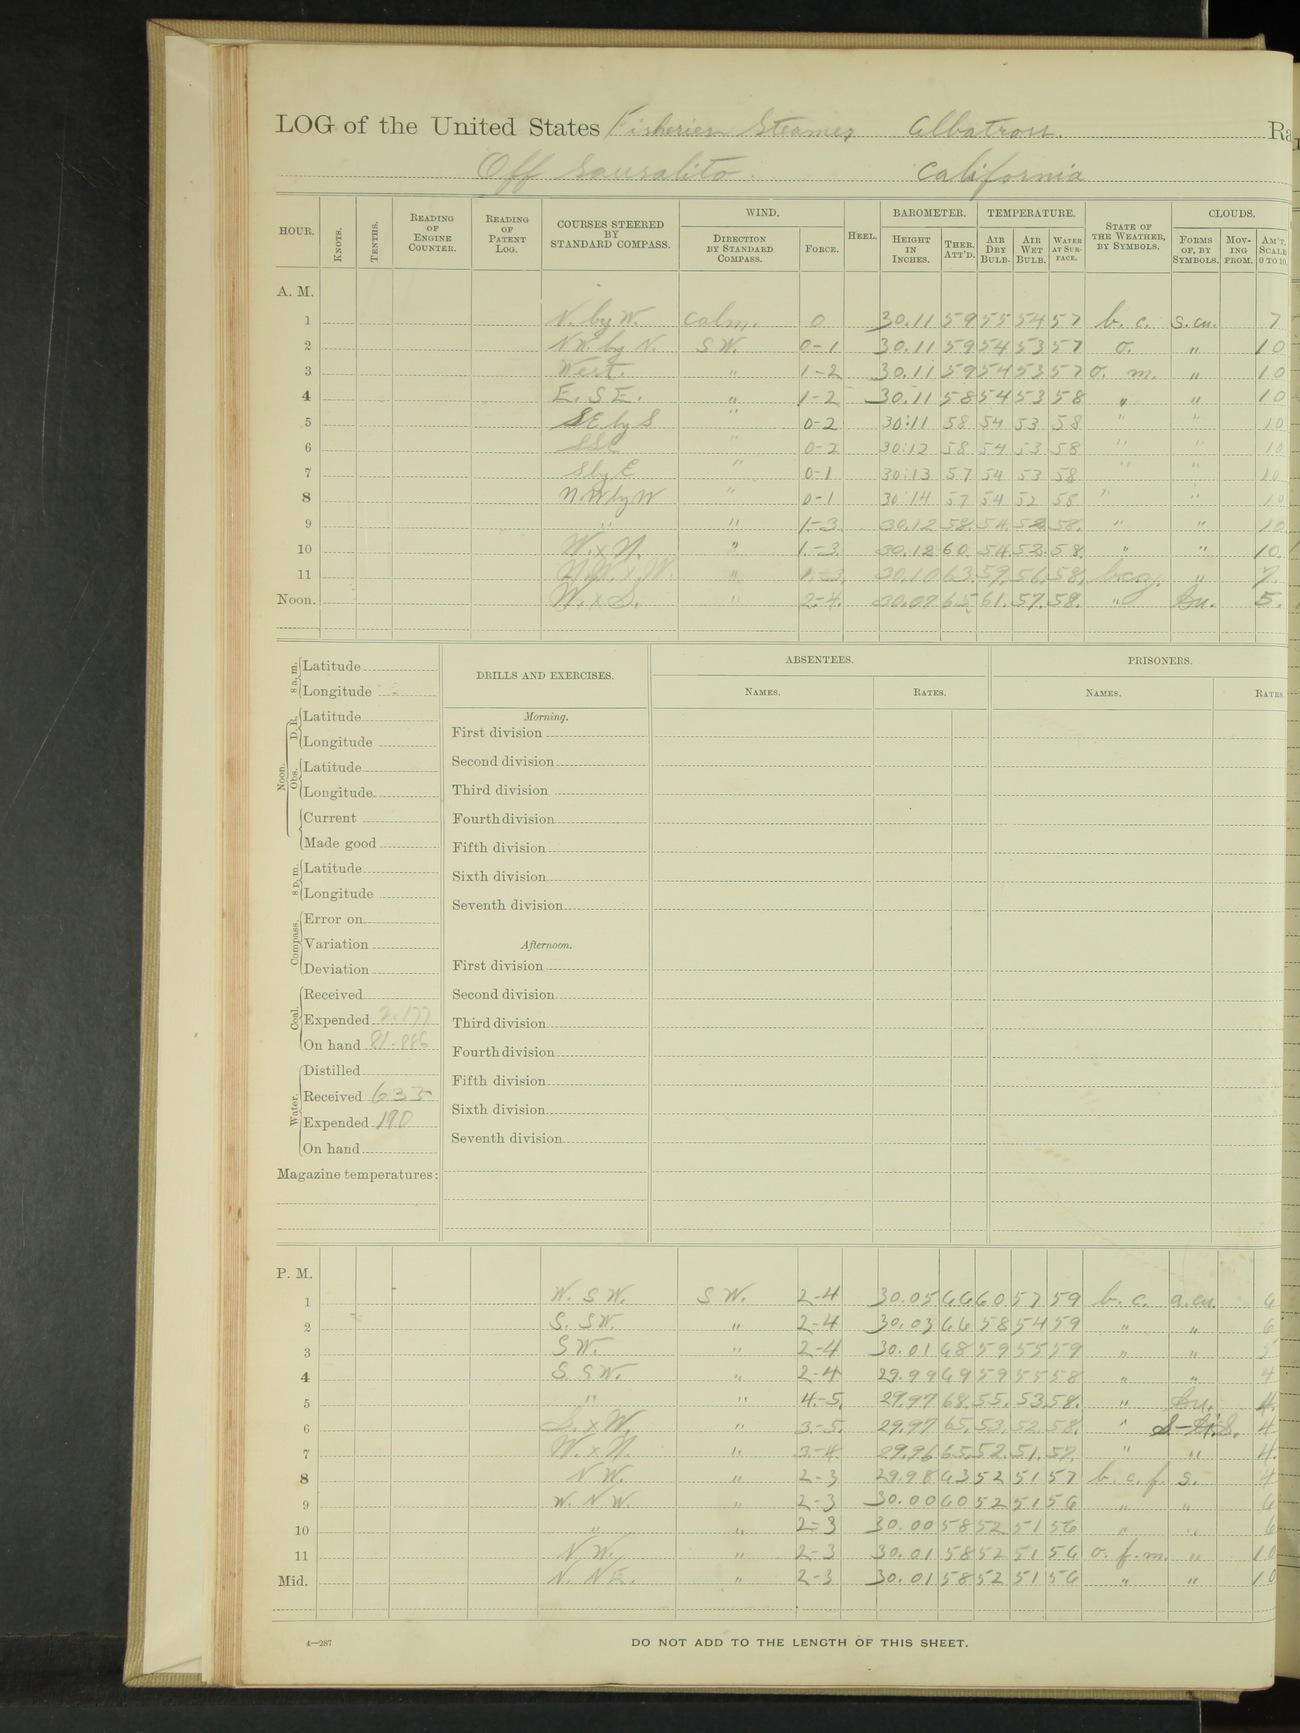 LOG of the United States Fisheries Steamer Albatross. Ra
Off Sausalito. California
HOUR. KNOTS. TENTHS. READING OF ENGINE COUNTER. READING OF PATENT LOG. COURSES STEERED BY STANDARD COMPASS. WIND. DIRECTION BY STANDARD COMPASS. FORCE. HEEL. BAROMETER. HEIGHT IN INCHES. THER. ATT'D. TEMPERATURE. AIR DRY BULB. AIR WET BULB. WATER AT SURFACE. STATE OF THE WEATHER, BY SYMBOLS. CLOUDS. FORMS OF, BY SYMBOLS. MOVING FROM. AM'T, SCALE 0 TO 10.
A. M.
1 N. by W. Calm. 0 30.11 59 55 54 57 b. c. s.cu. 7
2 NW. by N. SW. 0-1 30.11 59 54 53 57 o. " 10
3 West. " 1-2 30.11 59 54 53 57 o. m. " 10
4 E. S E. " 1-2 30.11 58 54 53 58 " " 10
5 SE by S " 0-2 30:11 58 54 53 58 " " 10
6 SSE " 0-2 30:12 58 54 53 58 " " 10
7 S by E " 0-1 30:13 57 54 53 58 " " 10
8 N.W by W " 0-1 30:14 57 54 52 58 " " 10
9 " " 1-3. 30.12 58. 54. 52. 58. " " 10
10 W. x N. " 1-3. 30.12 60. 54. 53. 58. " " 10.
11 N.W. x W. " 1-3 30.10 63. 59. 56. 58. bcg. " 7.
Noon. W. x S. " 2-4. 30.07 65 61. 57. 58. " Cu. 5.
8 a. m. Latitude
Longitude
Noon. D. R. Latitude
Longitude
Obs. Latitude
Longitude
Current
Made good
8 p. m. Latitude
Longitude
Compass. Error on
Variation
Deviation
Coal. Received
Expended 2.177
On hand 81.886
Water. Distilled
Received 635
Expended 190
On hand
Magazine temperatures:
DRILLS AND EXERCISES.
Morning.
First division
Second division
Third division
Fourth division
Fifth division
Sixth division
Seventh division
Afternoon.
First division
Second division
Third division
Fourth division
Fifth division
Sixth division
Seventh division
ABSENTEES.
NAMES. RATES.
PRISONERS.
NAMES. RATES.
P. M.
1 W. S W. S W. 2-4 30.05 66 60 57 59 b. c. a.cu. 6
2 S. SW. " 2-4 30.03 66 58 54 59 " " 6
3 SW. " 2-4 30.01 68 59 55 59 " " 5
4 S. S W. " 2-4 29.99 69 59 55 58 " " 4
5 " " 4.-5. 29.97 68. 55. 53. 58. " Cu. 4.
6 S. x W. " 3.-5. 29.97 65. 53. 52. 58. " 4
7 W. x N. " 3-4 29.96 65. 52. 51. 57. " " 4.
8 N W. " 2-3 29.98 63 52 51 57 b. c. f. s. 4
9 W. N W. " 2-3 30.00 60 52 51 56 " " 6
10 " " 2-3 30.00 58 52 51 56 " " 6
11 N W. " 2-3 30.01 58 52 51 56 o. f. m. " 10
Mid. N. N E. " 2-3 30.01 58 52 51 56 " " 10
4—287
DO NOT ADD TO THE LENGTH OF THIS SHEET.